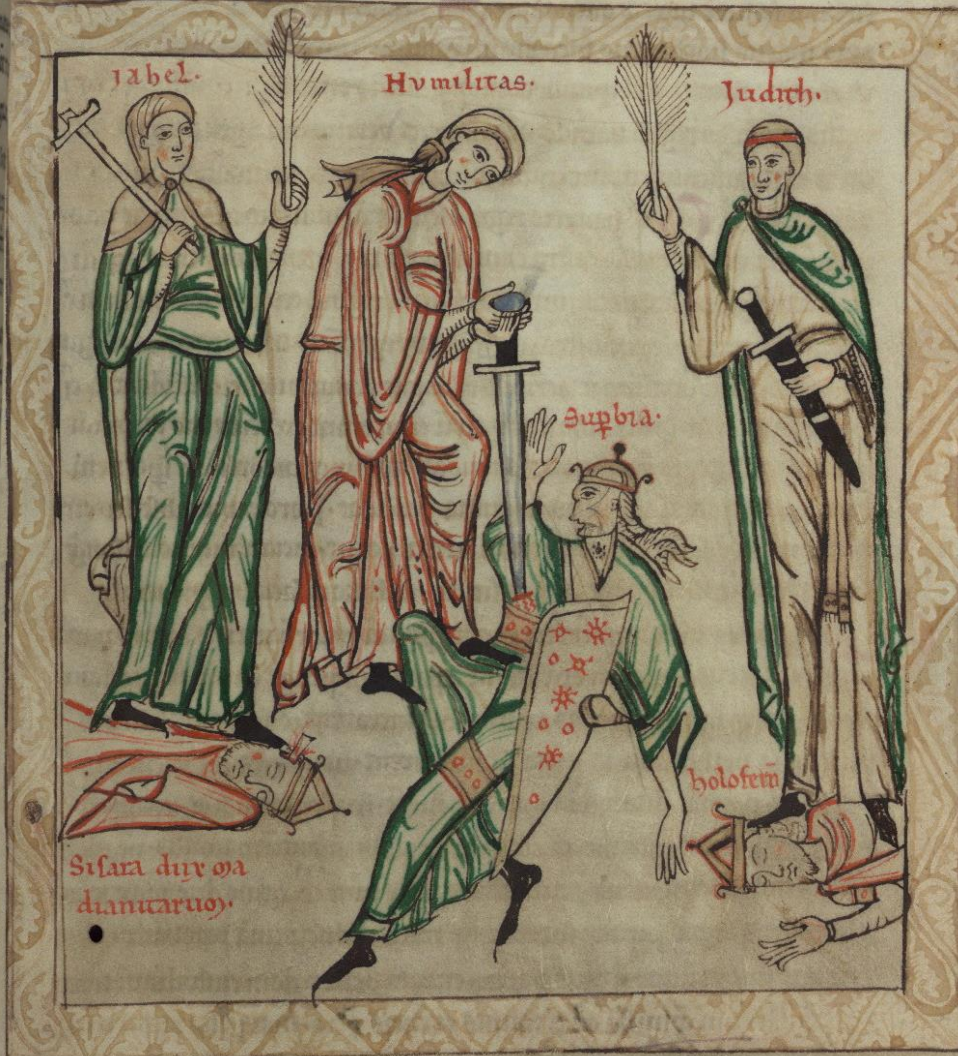 Iahel.
Humilitas.
Judith.
Sup̱bia.
holofern̄
Sisara dux ma
dianitaruo).